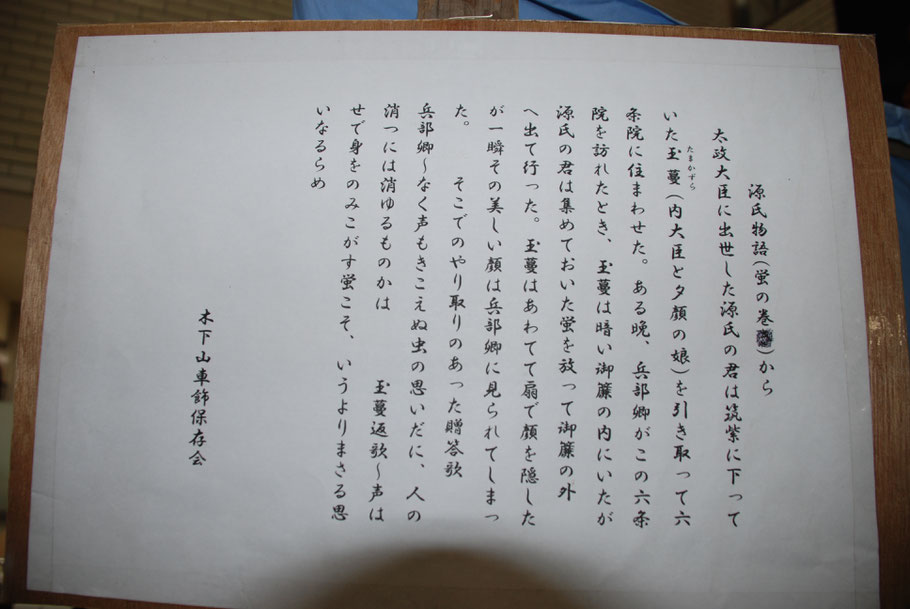 源氏物語(蛍の巻)から
太政大臣に出世した源氏の君は筑紫に下って
いた玉蔓(内大臣と夕顔の娘)を引き取って六
たまかずら
条院に住まわせた。ある晩、兵部卿がこの六条
院を訪れたとき、玉蔓は暗い御簾の内にいたが
源氏の君は集めておいた蛍を放って御簾の外
へ出て行った。玉蔓はあわてて扇で顔を隠した
が一瞬その美しい顔は兵部卿に見られてしまっ
た。 そこでのやり取りのあった贈答歌
兵部卿~なく声もきこえぬ虫の思いだに、人の
消つには消ゆるものかは 玉蔓返歌~声は
せで身をのみこがす蛍こそ、いうよりまさる思
いなるらめ
木下山車飾保存会